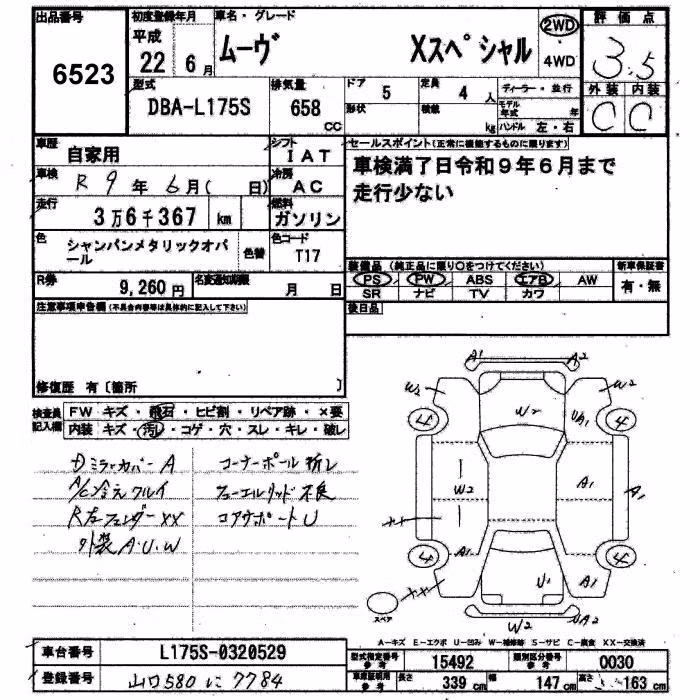 出品番号 初度登録年月 車名・グレード 2WD 評価点
6523 平成 22 6月 ムーヴ Xスペシャル 4WD 3.5
型式 排気量 ドア 5 定員 4人 ディーラー・並行 外装 内装
DBA-L175S 658 cc 形状 積載 kg モデル年式 年 ハンドル 左・右 C C
車歴 自家用 シフト IAT セールスポイント(正常に機能するものに限ります)
車検 R 9年 6月( 日) 冷房 AC 車検満了日令和9年6月まで
走行 3万6千367 km 燃料 ガソリン 走行少ない
色 シャンパンメタリックオパール 色替 色コード T17
R券 9,260円 名変通知期限 月 日
装備品(純正品に限り○をつけてください) 新車保証書
PS PW ABS エアB AW 有・無
SR ナビ TV カワ
注意事項申告欄(不具合内容等は具体的に記入して下さい) 後日品
修復歴 有〔箇所 〕
検査員記入欄 FW キズ・飛石・ヒビ割・リペア跡・×要
内装 キズ・汚レ・コゲ・穴・スレ・キレ・破レ
Dミラーカバー A コーナーポール 折レ
A/C冷え ワルイ フューエルリッド 不良
R左フェンダー XX コアサポート U
外装 A.U.W
A1 A2
W2 W2
W2 UA1
4 4
W2 A1 A1
XX
A1
4 4
XX U1 A1
W2 A2
スペア
A-キズ E-エクボ U-凹み W-補修跡 S-サビ C-腐食 XX-交換済
車台番号 L175S-0320529 型式指定番号 参考 15492 類別区分番号 参考 0030
登録番号 山口580 に 7784 車庫証明用 参考 長さ 339cm 幅 147cm 高さ 163cm